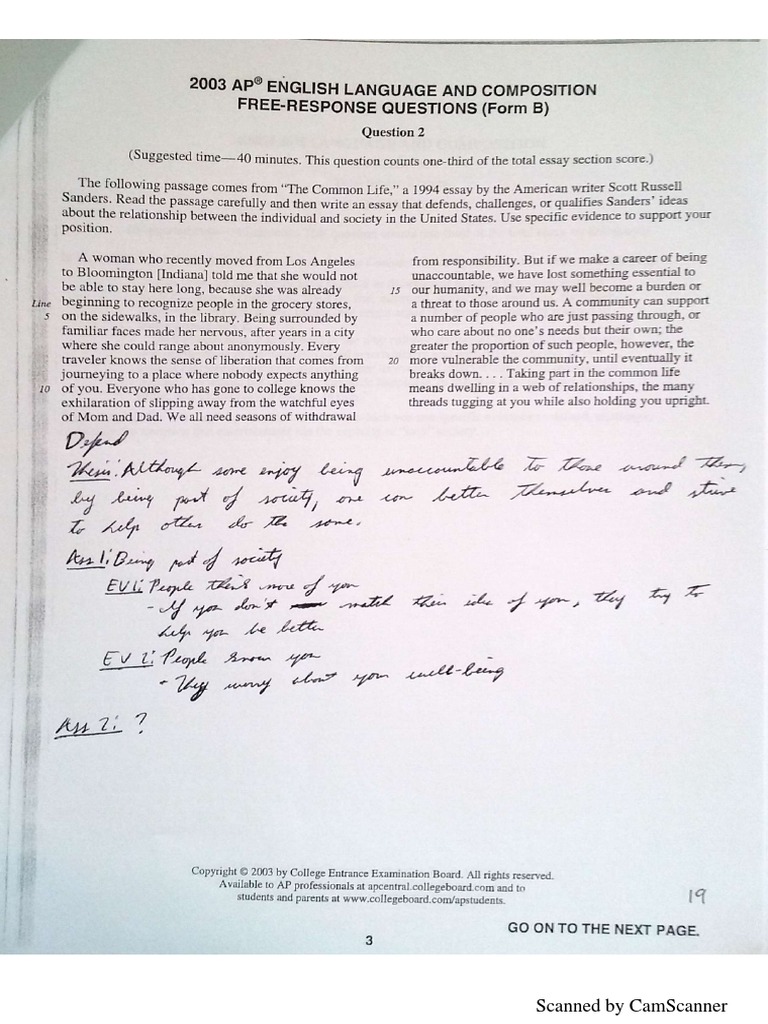 2003 AP® ENGLISH LANGUAGE AND COMPOSITION
FREE-RESPONSE QUESTIONS (Form B)
Question 2
(Suggested time—40 minutes. This question counts one-third of the total essay section score.)
The following passage comes from “The Common Life,” a 1994 essay by the American writer Scott Russell
Sanders. Read the passage carefully and then write an essay that defends, challenges, or qualifies Sanders’ ideas
about the relationship between the individual and society in the United States. Use specific evidence to support your
position.
A woman who recently moved from Los Angeles
to Bloomington [Indiana] told me that she would not
be able to stay here long, because she was already
Line beginning to recognize people in the grocery stores,
5 on the sidewalks, in the library. Being surrounded by
familiar faces made her nervous, after years in a city
where she could range about anonymously. Every
traveler knows the sense of liberation that comes from
journeying to a place where nobody expects anything
10 of you. Everyone who has gone to college knows the
exhilaration of slipping away from the watchful eyes
of Mom and Dad. We all need seasons of withdrawal
from responsibility. But if we make a career of being
unaccountable, we have lost something essential to
15 our humanity, and we may well become a burden or
a threat to those around us. A community can support
a number of people who are just passing through, or
who care about no one’s needs but their own; the
greater the proportion of such people, however, the
20 more vulnerable the community, until eventually it
breaks down. . . . Taking part in the common life
means dwelling in a web of relationships, the many
threads tugging at you while also holding you upright.
Defend
Thesis: Although some enjoy being unaccountable to those around them,
by being part of society, one can better themselves and strive
to help other do the same.
Ass 1: Being part of society
EV 1: People think more of you
- If you don't match their idea of you, they try to
help you be better
EV 2: People know you
- They worry about your well-being
Ass 2: ?
Copyright © 2003 by College Entrance Examination Board. All rights reserved.
Available to AP professionals at apcentral.collegeboard.com and to
students and parents at www.collegeboard.com/apstudents.
19
GO ON TO THE NEXT PAGE.
3
Scanned by CamScanner